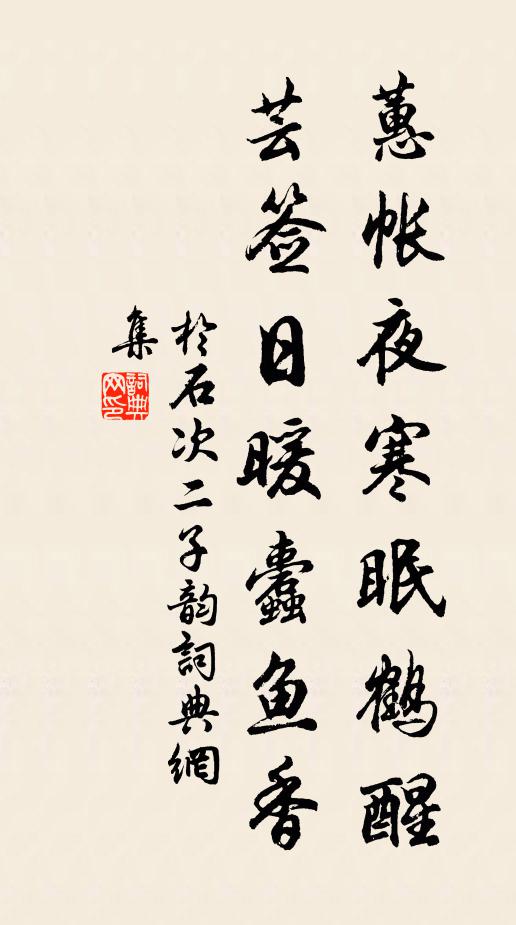 蕙帐夜寒眠鹤醒
芸签日暖蠹鱼香
於石次二子韵詞典網
集
詞典网印